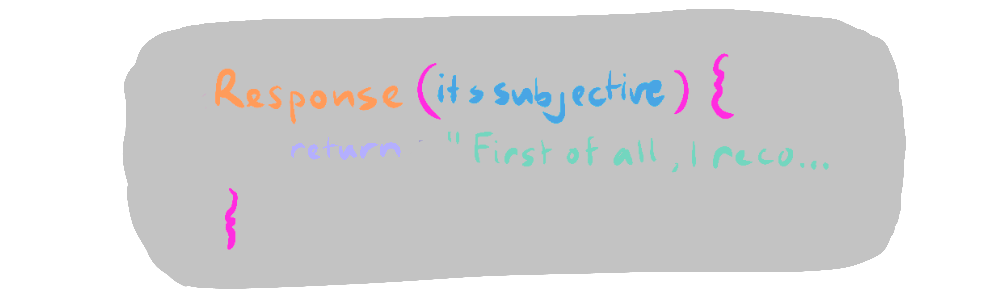 Response (itssubjective) {
return "First of all, I reco...
}